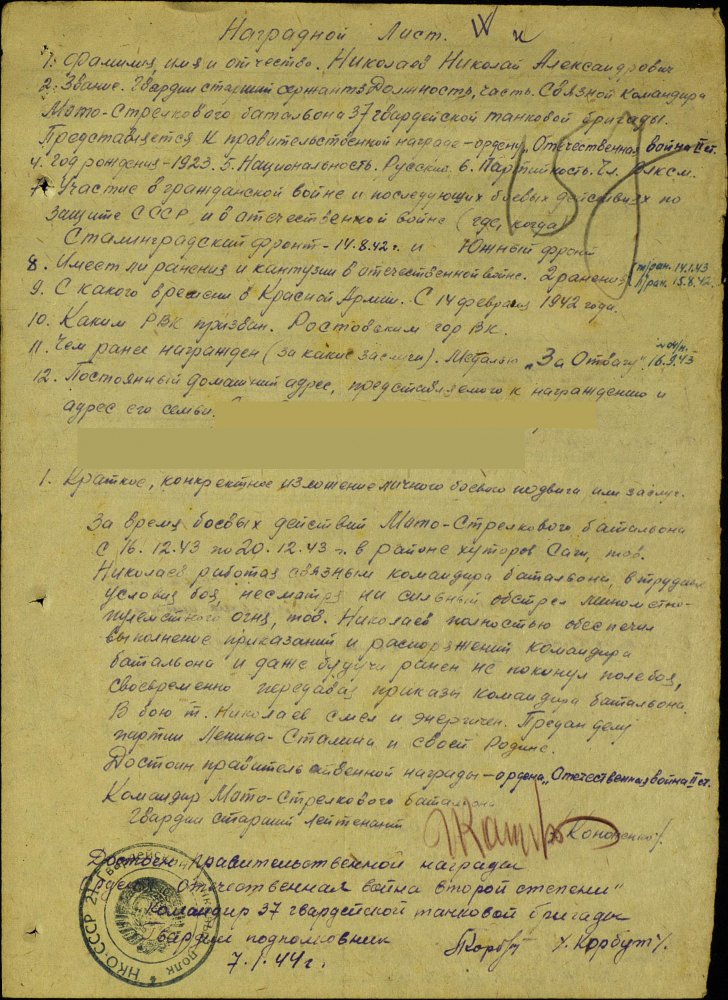 Наградной Лист.
1. Фамилия, имя и отчество. Николаев Николай Александрович
2. Звание. Гвардии старший сержант 3. Должность, часть. Связной командира
Мото-Стрелкового батальона 37 гвардейской танковой бригады.
Представляется к правительственной награде - ордену "Отечественная война II ст.
4. Год рождения - 1923. 5. Национальность. Русский. 6. Партийность. Чл. ВЛКСМ.
7. Участие в гражданской войне и последующих боевых действиях по
защите СССР и в отечественной войне (где, когда)
Сталинградский фронт - 14.8.42 г. и Южный фронт
8. Имеет ли ранения и контузии в отечественной войне. 2 ранения т/ран. 14.1.43
л/ран. 15.8.42.
9. С какого времени в Красной Армии. С 14 февраля 1942 года.
10. Каким РВК призван. Ростовским гор ВК.
11. Чем ранее награжден (за какие заслуги). Медалью "За Отвагу" 16.9.43
12. Постоянный домашний адрес, представляемого к награждению и
адрес его семьи.
1. Краткое, конкретное изложение личного боевого подвига или заслуг.
За время боевых действий Мото-Стрелкового батальона
с 16.12.43 по 20.12.43 г. в районе хуторов Саги, тов.
Николаев работая связным командира батальона, в трудных
условия боя, несматря на сильный обстрел минометно-
пулеметного огня, тов. Николаев полностью обеспечил
выполнение приказаний и распоряжений командира
батальона и даже будучи ранен не покинул поле боя,
своевременно передавая приказы командира батальона.
В бою т. Николаев смел и энергичен. Предан делу
партии Ленина-Сталина и своей Родине.
Достоин правительственной награды - ордена "Отечественная война II ст.
Командир Мото-Стрелкового батальона
Гвардии старший лейтенант /Кононенко/.
Достоин правительственной награды
ордена "Отечественная война второй степени"
Командир 37 гвардейской танковой бригады
гвардии подполковник /Корбут/
7.1.44 г.
НКО-СССР
полк